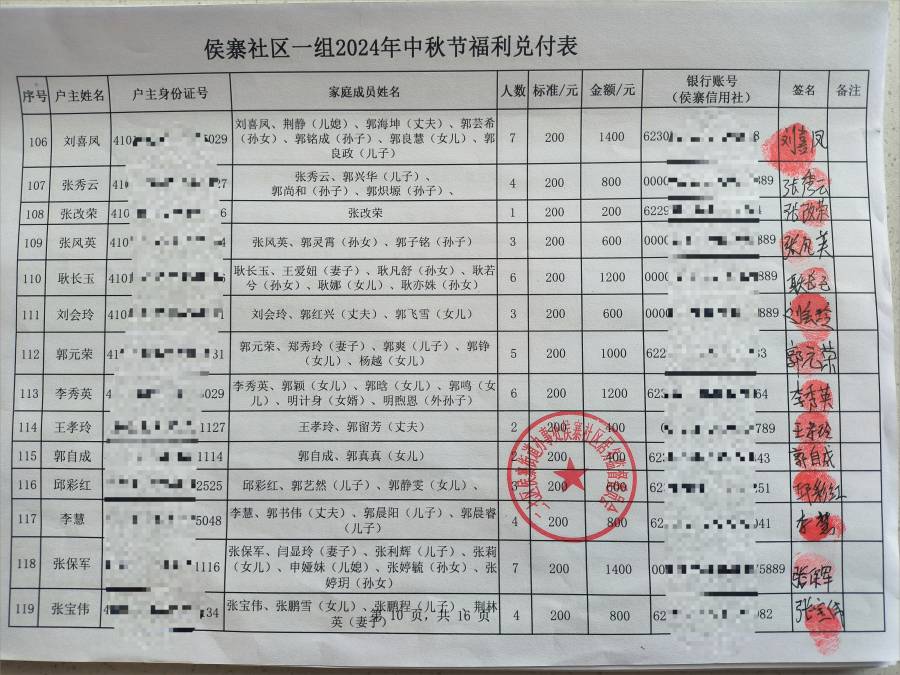 侯寨社区一组2024年中秋节福利兑付表
序号 户主姓名 户主身份证号 家庭成员姓名 人数 标准/元 金额/元 银行账号 签名 备注
（侯寨信用社）
刘喜凤、荆静（儿媳）、郭海坤（丈夫）、郭芸希
106 刘喜凤 4101 5029 （孙女）、郭铭成（孙子）、郭良慧（女儿）、郭 7 200 1400 6230 8 刘喜凤
良政（儿子）
张秀云、郭兴华（儿子）、
107 张秀云 410 27 4 200 800 0000 889 张秀云
郭尚和（孙子）、郭炽塬（孙子）、
108 张改荣 410 6 张改荣 1 200 200 6229 4 张改荣
109 张风英 410 4 张风英、郭灵霄（孙女）、郭子铭（孙子） 3 200 600 0000 889
耿长玉、王爱妞（妻子）、耿凡舒（孙女）、耿若
110 耿长玉 4101 6 200 1200 0000 889 耿长玉
兮（孙女）、耿娜（女儿）、耿亦姝（孙女）
111 刘会玲 410 1 刘会玲、郭红兴（丈夫）、郭飞雪（女儿） 3 200 600 0000 889 刘会玲
郭元荣、郑秀玲（妻子）、郭爽（儿子）、郭铮
112 郭元荣 41 31 5 200 1000 622 33 郭元荣
（女儿）、杨越（女儿）
李秀英、郭颖（女儿）、郭晗（女儿）、郭鸣（女
113 李秀英 4 5029 6 200 1200 623 64 李秀英
儿）、明计身（女婿）、明煦恩（外孙子）
114 王孝玲 1127 王孝玲、郭留芳（丈夫） 2 200 400 0 789 王孝玲
115 郭自成 1114 郭自成、郭真真（女儿） 2 200 400 623 443 郭自成
116 邱彩红 2525 邱彩红、郭艺然（儿子）、郭静雯（女儿）、 3 200 600 62 251 邱彩红
李慧、郭书伟（丈夫）、郭晨阳（儿子）、郭晨睿
117 李慧 5048 4 200 800 62 041 李慧
（儿子）
张保军、闫显玲（妻子）、张利辉（儿子）、张莉
118 张保军 1116 （女儿）、申娅妹（儿媳）、张婷毓（孙女）、张 7 200 1400 00 75889 张保军
婷玥（孙女）
张宝伟、张鹏雪（女儿）、张鹏程（儿子）、荆林
119 张宝伟 4 34 4 200 800 62 982 张宝伟
英（妻子）
第 10 页，共 16 页